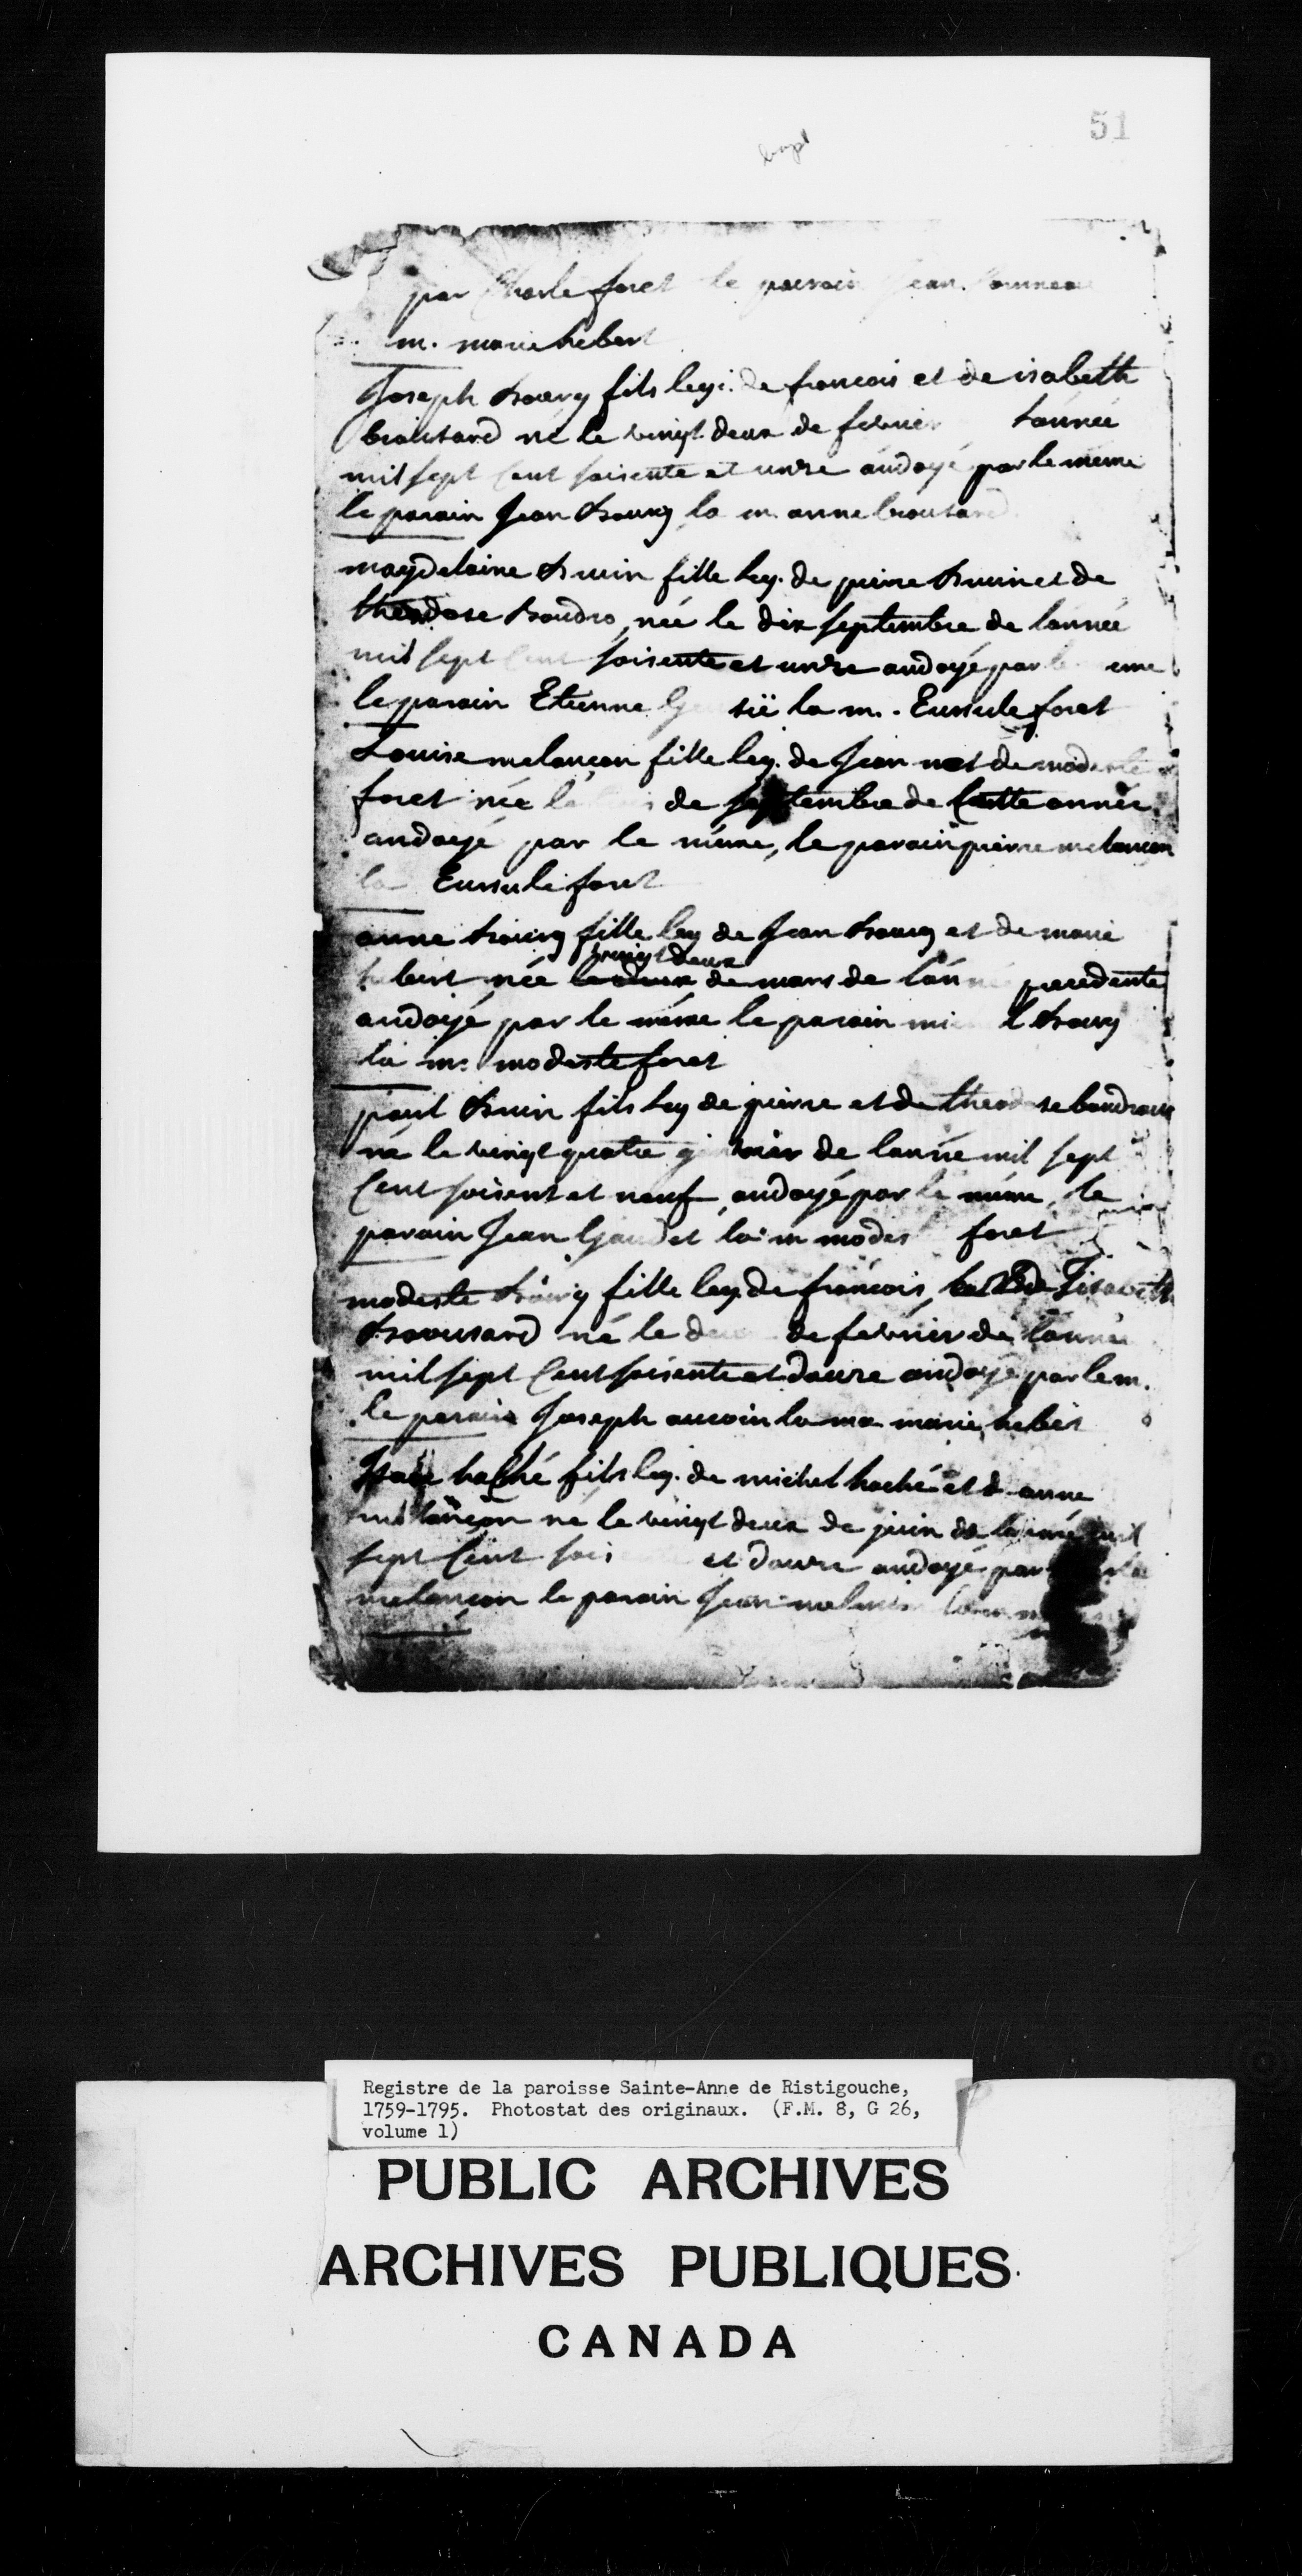 51
bapt
par Charle foret le parain Jean
m. marie hebert
Joseph bourg fils legi. de francois et de isabeth
brousard né le vingt deux de fevrier lannee
mil sept Cent soisente et unze andoyé par le meme
le parain Jean bourg la m. anne brousard
magdelaine bruin fille leg. de pierre bruin et de
theodose boudro née le dix septembre de lannee
mil sept Cent soisente et unze andoyé par le eme
le parain Etienne la m. Eursule foret
Louise melançon fille leg. de Jean m et de modeste
foret née le de septembre de Cette année
andoyé par le même, le parain pierre melancon
la Eursule foret
anne bourg fille leg de Jean bourg et de marie
hebert née vingt deux de mars de lannée precedente
andoyé par le même le parain mi l bourg
la m. modeste foret
paul bruin fils leg de pierre et de theodose boudraux
né le vingt quatre janvier de lannée mil sept
Cent soisent et neuf andoyé par le même, le
parain Jean Gaudet la m modes foret
modeste bourg fille leg. de francois
brousard né le de fevrier de lannee
mil sept Cent soisente et douze andoyé par le m.
le parain Joseph aucoin la ma marie heber
haché fils leg. de michel haché et d anne
melançon né le vingt deux de juin de lannée mil
sept Cent sois et douze andoyé par
melançon le parain Jean
Registre de la paroisse Sainte-Anne de Ristigouche,
1759-1795. Photostat des originaux. (F.M. 8, G 26,
volume 1)
PUBLIC ARCHIVES
ARCHIVES PUBLIQUES
CANADA